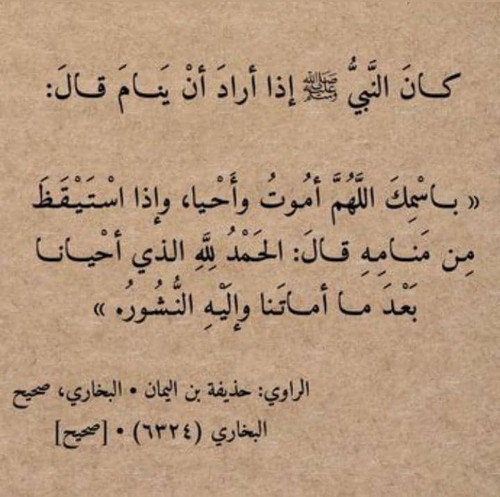 كَانَ النَّبِيُّ ﷺ إذا أرادَ أنْ يَنامَ قالَ:
« باسْمِكَ اللَّهُمَّ أمُوتُ وأَحْيا، وإذا اسْتَيْقَظَ
مِن مَنامِهِ قالَ: الحَمْدُ لِلَّهِ الذي أحْيانا
بَعْدَ ما أماتَنا وإلَيْهِ النُّشُورُ. »
الراوي: حذيفة بن اليمان • البخاري، صحيح
البخاري (٦٣٢٤) • [صحيح]